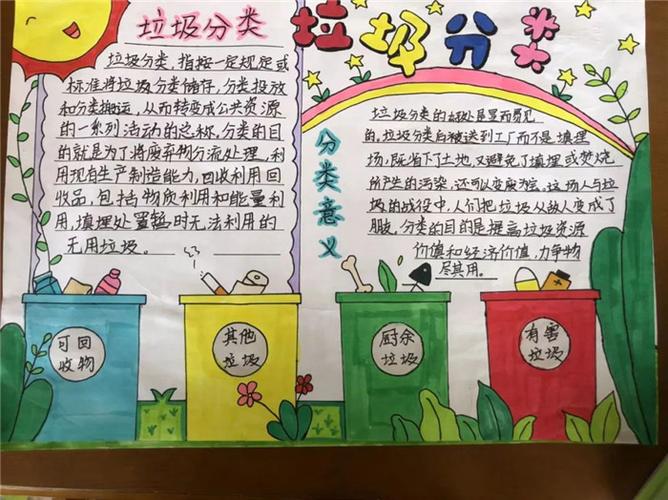 垃圾分类
垃圾分类，指按一定规定或
标准将垃圾分类储存，分类投放
和分类搬运，从而转变成公共资源
的一系列活动的总称，分类的目
的就是为了将废弃物分流处理，利
用现有生产制造能力，回收利用回
收品，包括物质利用和能量利
用，填埋处置暂时无法利用的
无用垃圾。
垃圾分类
分类意义
垃圾分类的好处是显而易见
的，垃圾分类后被送到工厂而不是填埋
场，既省下了土地，又避免了填埋或焚烧
所产生的污染，还可以变废为宝。这场人与垃
圾的战役中，人们把垃圾从敌人变成了
朋友，分类的目的是提高垃圾资源
价值和经济价值，力争物
尽其用。
可回
收物
其他
垃圾
厨余
垃圾
有害
垃圾